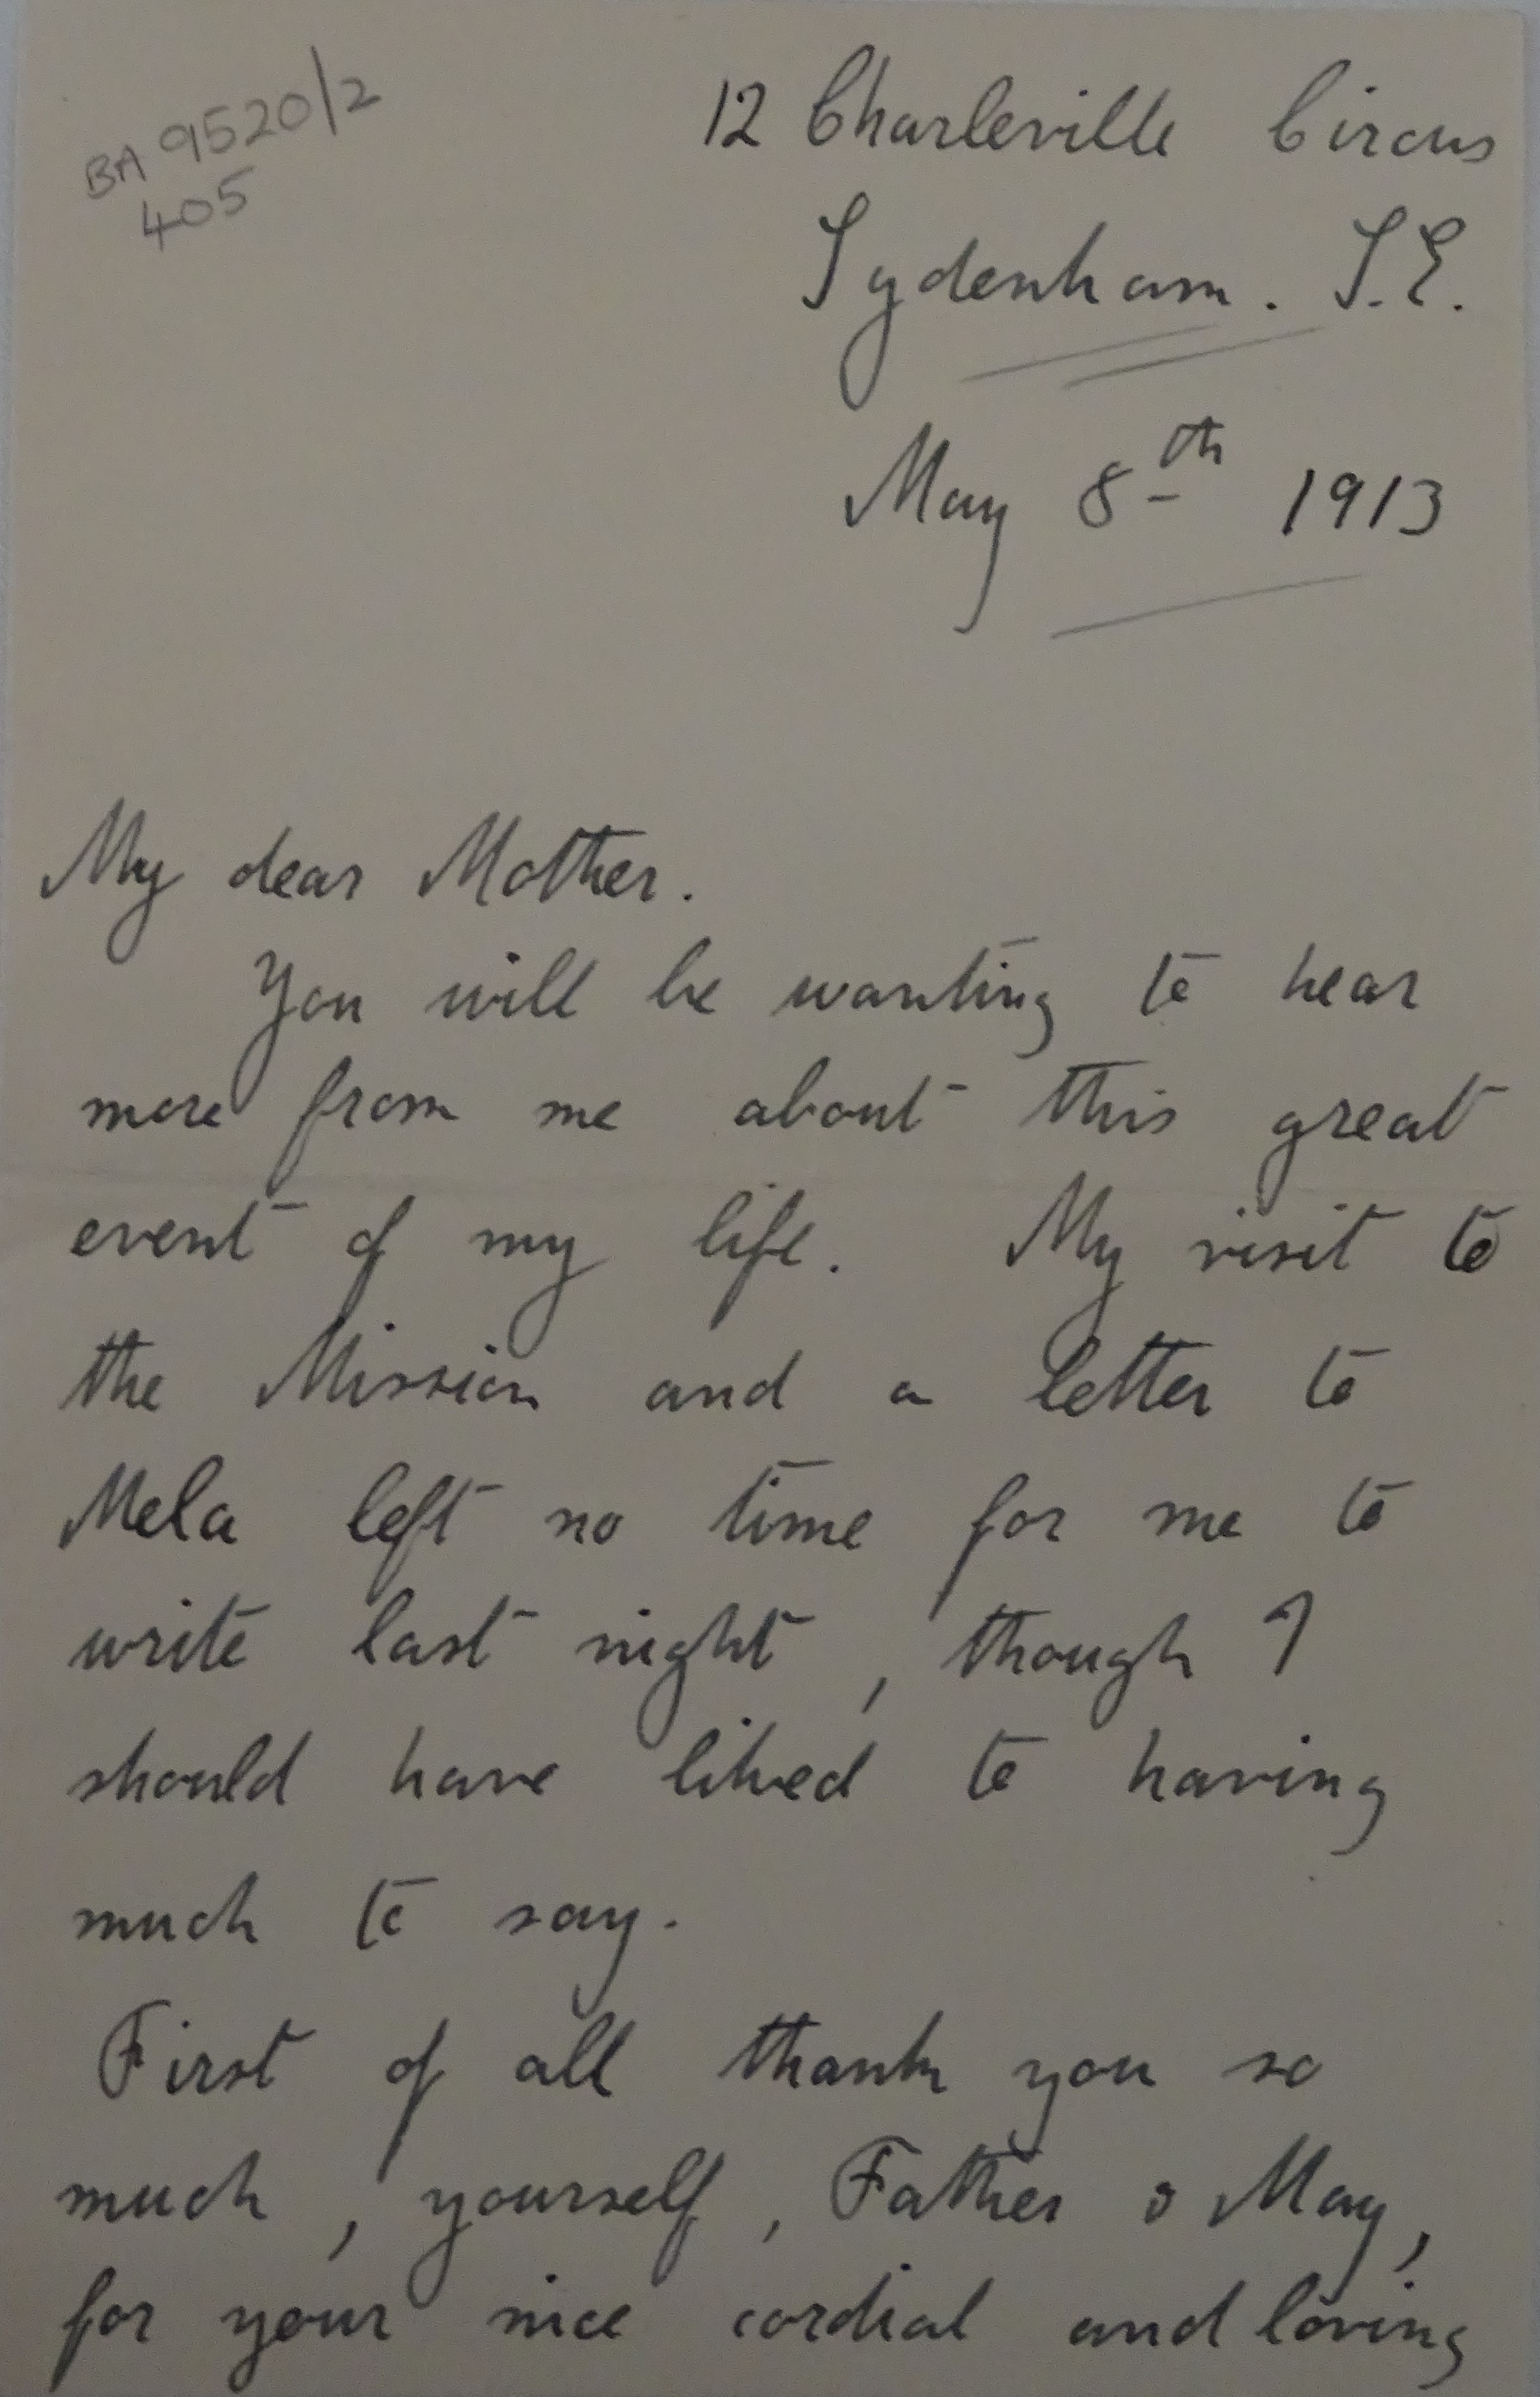 BA 9520/2
405
12 Charleville Circus
Sydenham. S.E.
May 8th 1913
My dear Mother.
You will be wanting to hear
more from me about this great
event of my life. My visit to
the Mission and a letter to
Mela left no time for me to
write last night, though I
should have liked to having
much to say.
First of all thank you so
much, yourself, Father & May,
for your nice cordial and loving